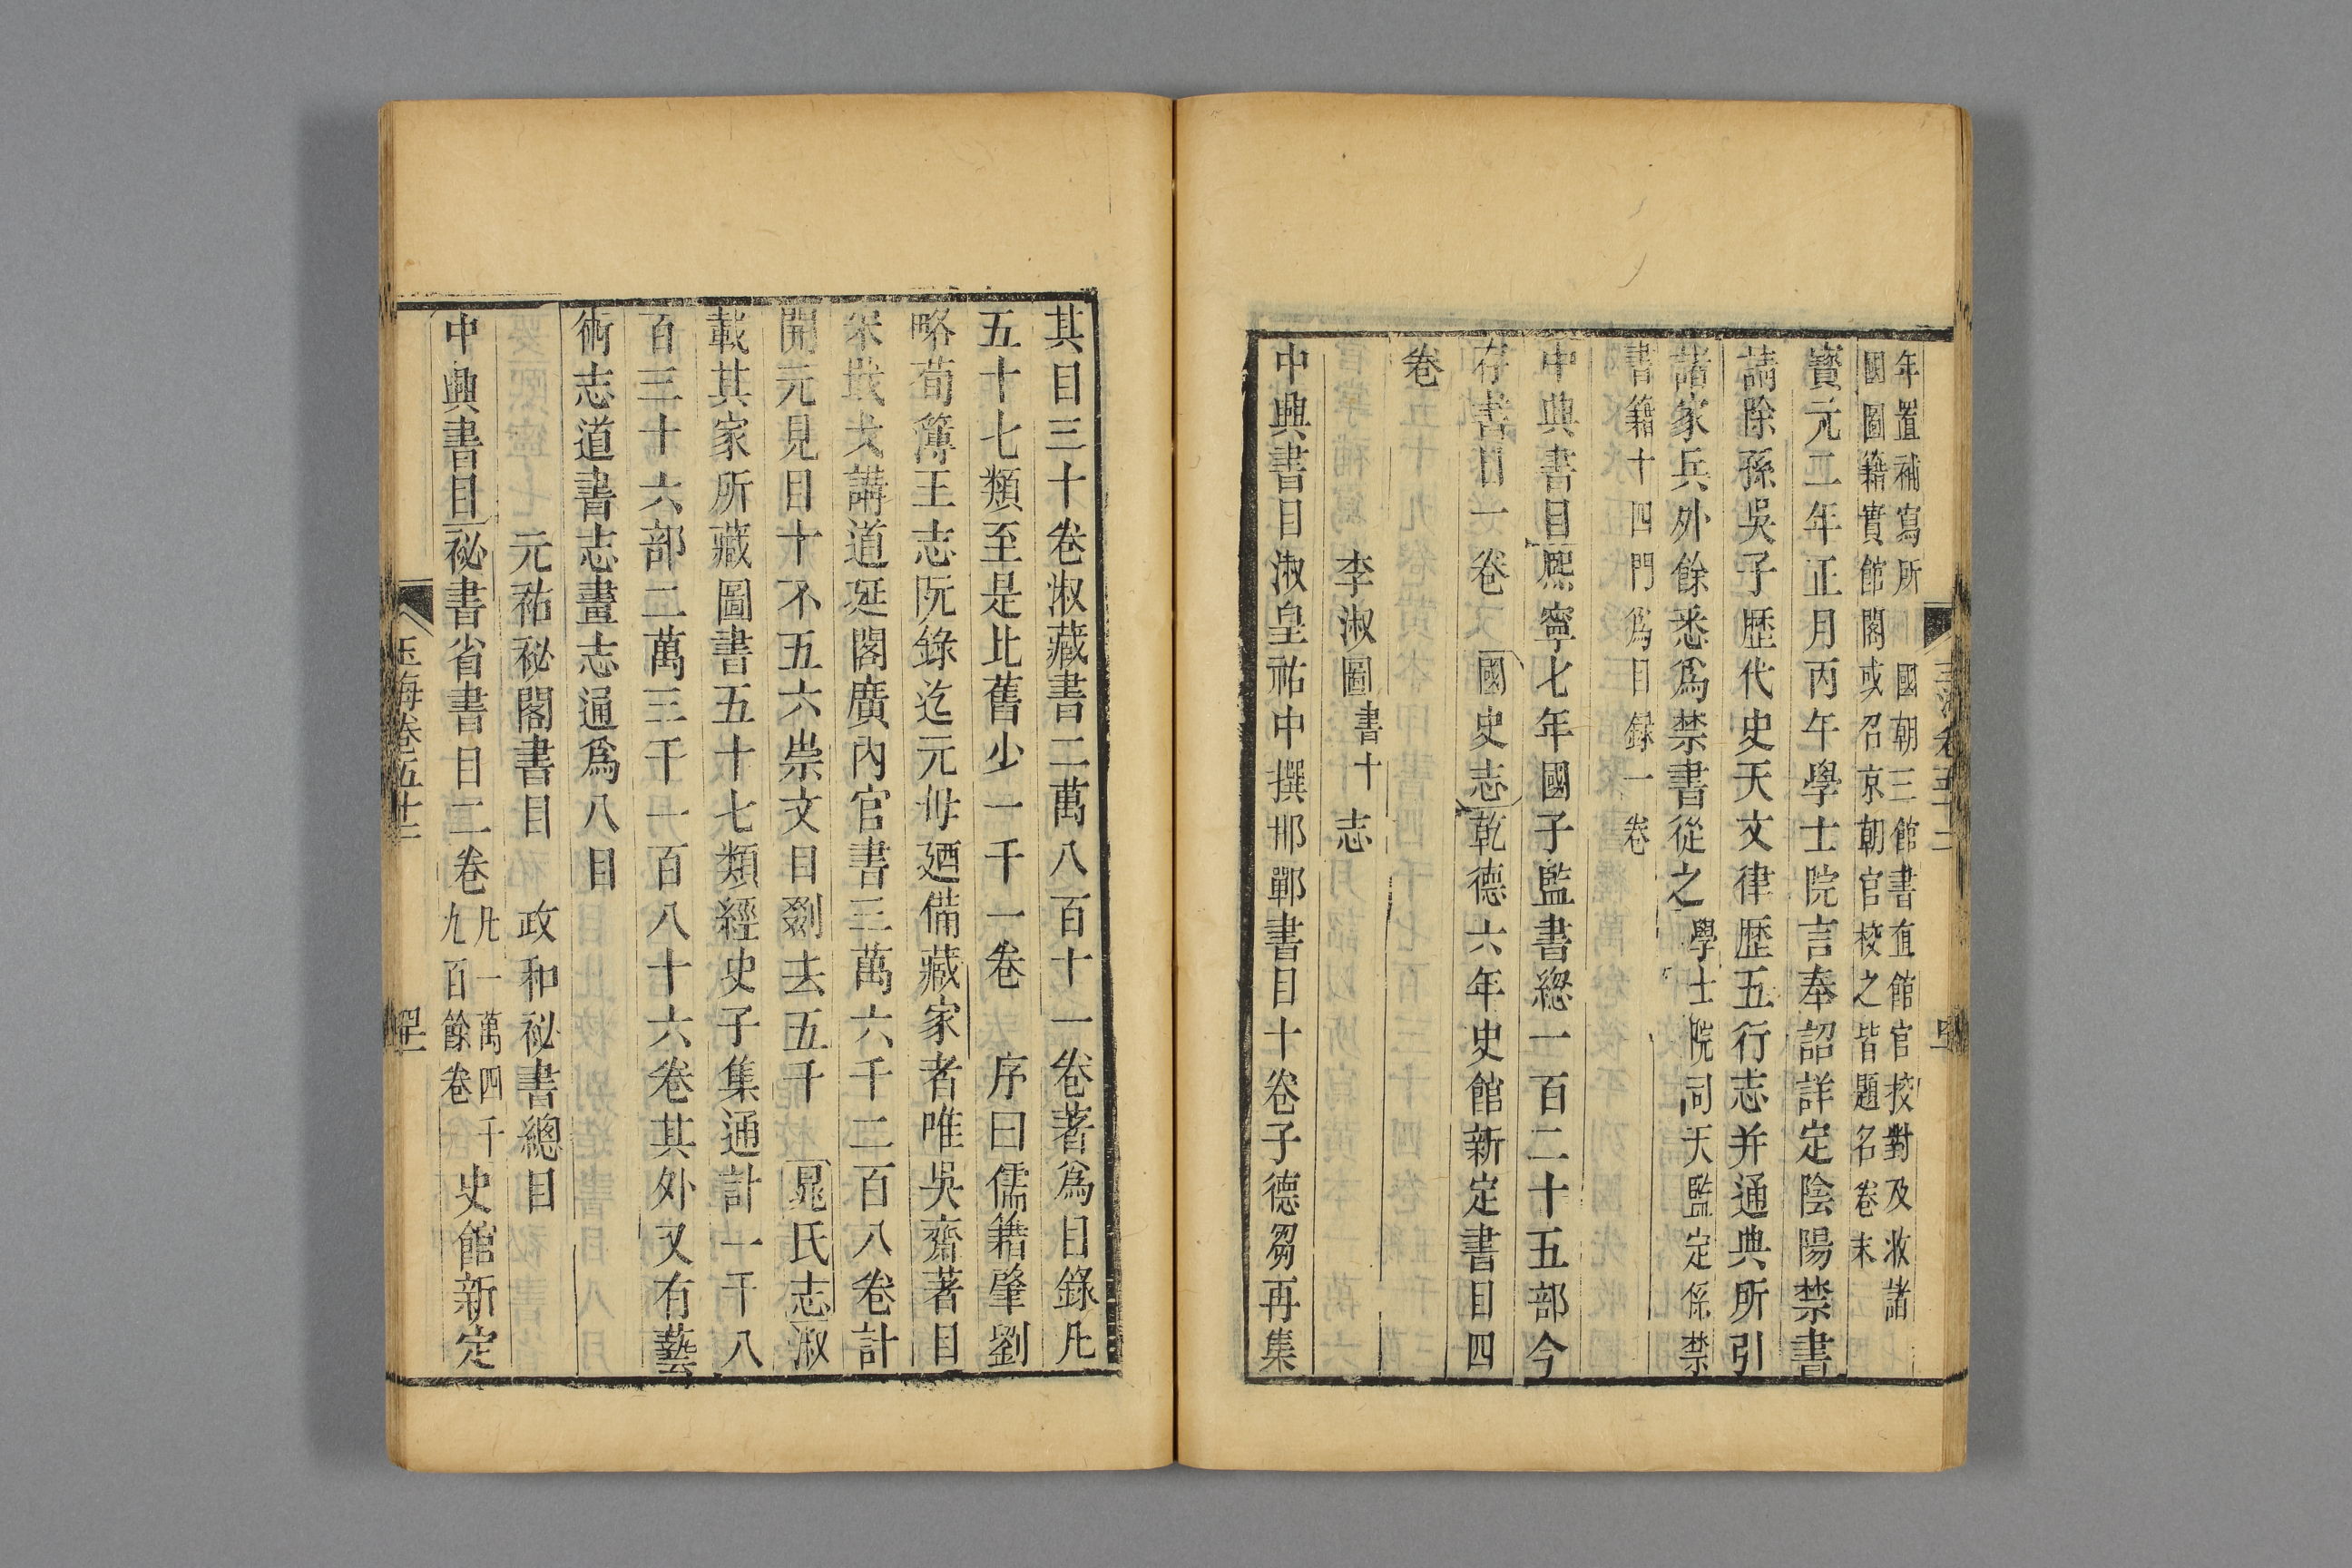 年置補寫所　國朝三館書直館官校對及收諸
國圖籍實館閣或召京朝官校之皆題名卷末
寶元二年正月丙午學士院言奉詔詳定陰陽禁書
請除孫吳子歷代史天文律歷五行志并通典所引
諸家兵外餘悉爲禁書從之學士院司天監定係禁
書籍十四門爲目録一卷
中興書目熈寧七年國子監書緫一百二十五部今
存書目一卷　國史志乾德六年史館新定書目四
卷
李淑圖書十志
中興書目淑皇祐中撰邯鄲書目十卷子德芻再集
其目三十卷淑藏書二萬八百十一卷著爲目錄凡
五十七類至是比舊少一千一卷　序曰儒籍肇劉
略荀簿王志阮錄迄元毋廼備藏家者唯吳齋著目
講道延閣廣內官書三萬六千二百八卷計
開元見目十不五六崇文目剟去五千　晁氏志淑
載其家所藏圖書五十七類經史子集通計一千八
百三十六部二萬三千一百八十六卷其外又有藝
術志道書志畫志通爲八目
元祐祕閣書目　政和祕書總目
中興書目祕書省書目二卷凡一萬四千九百餘卷史館新定
玉海卷五十二